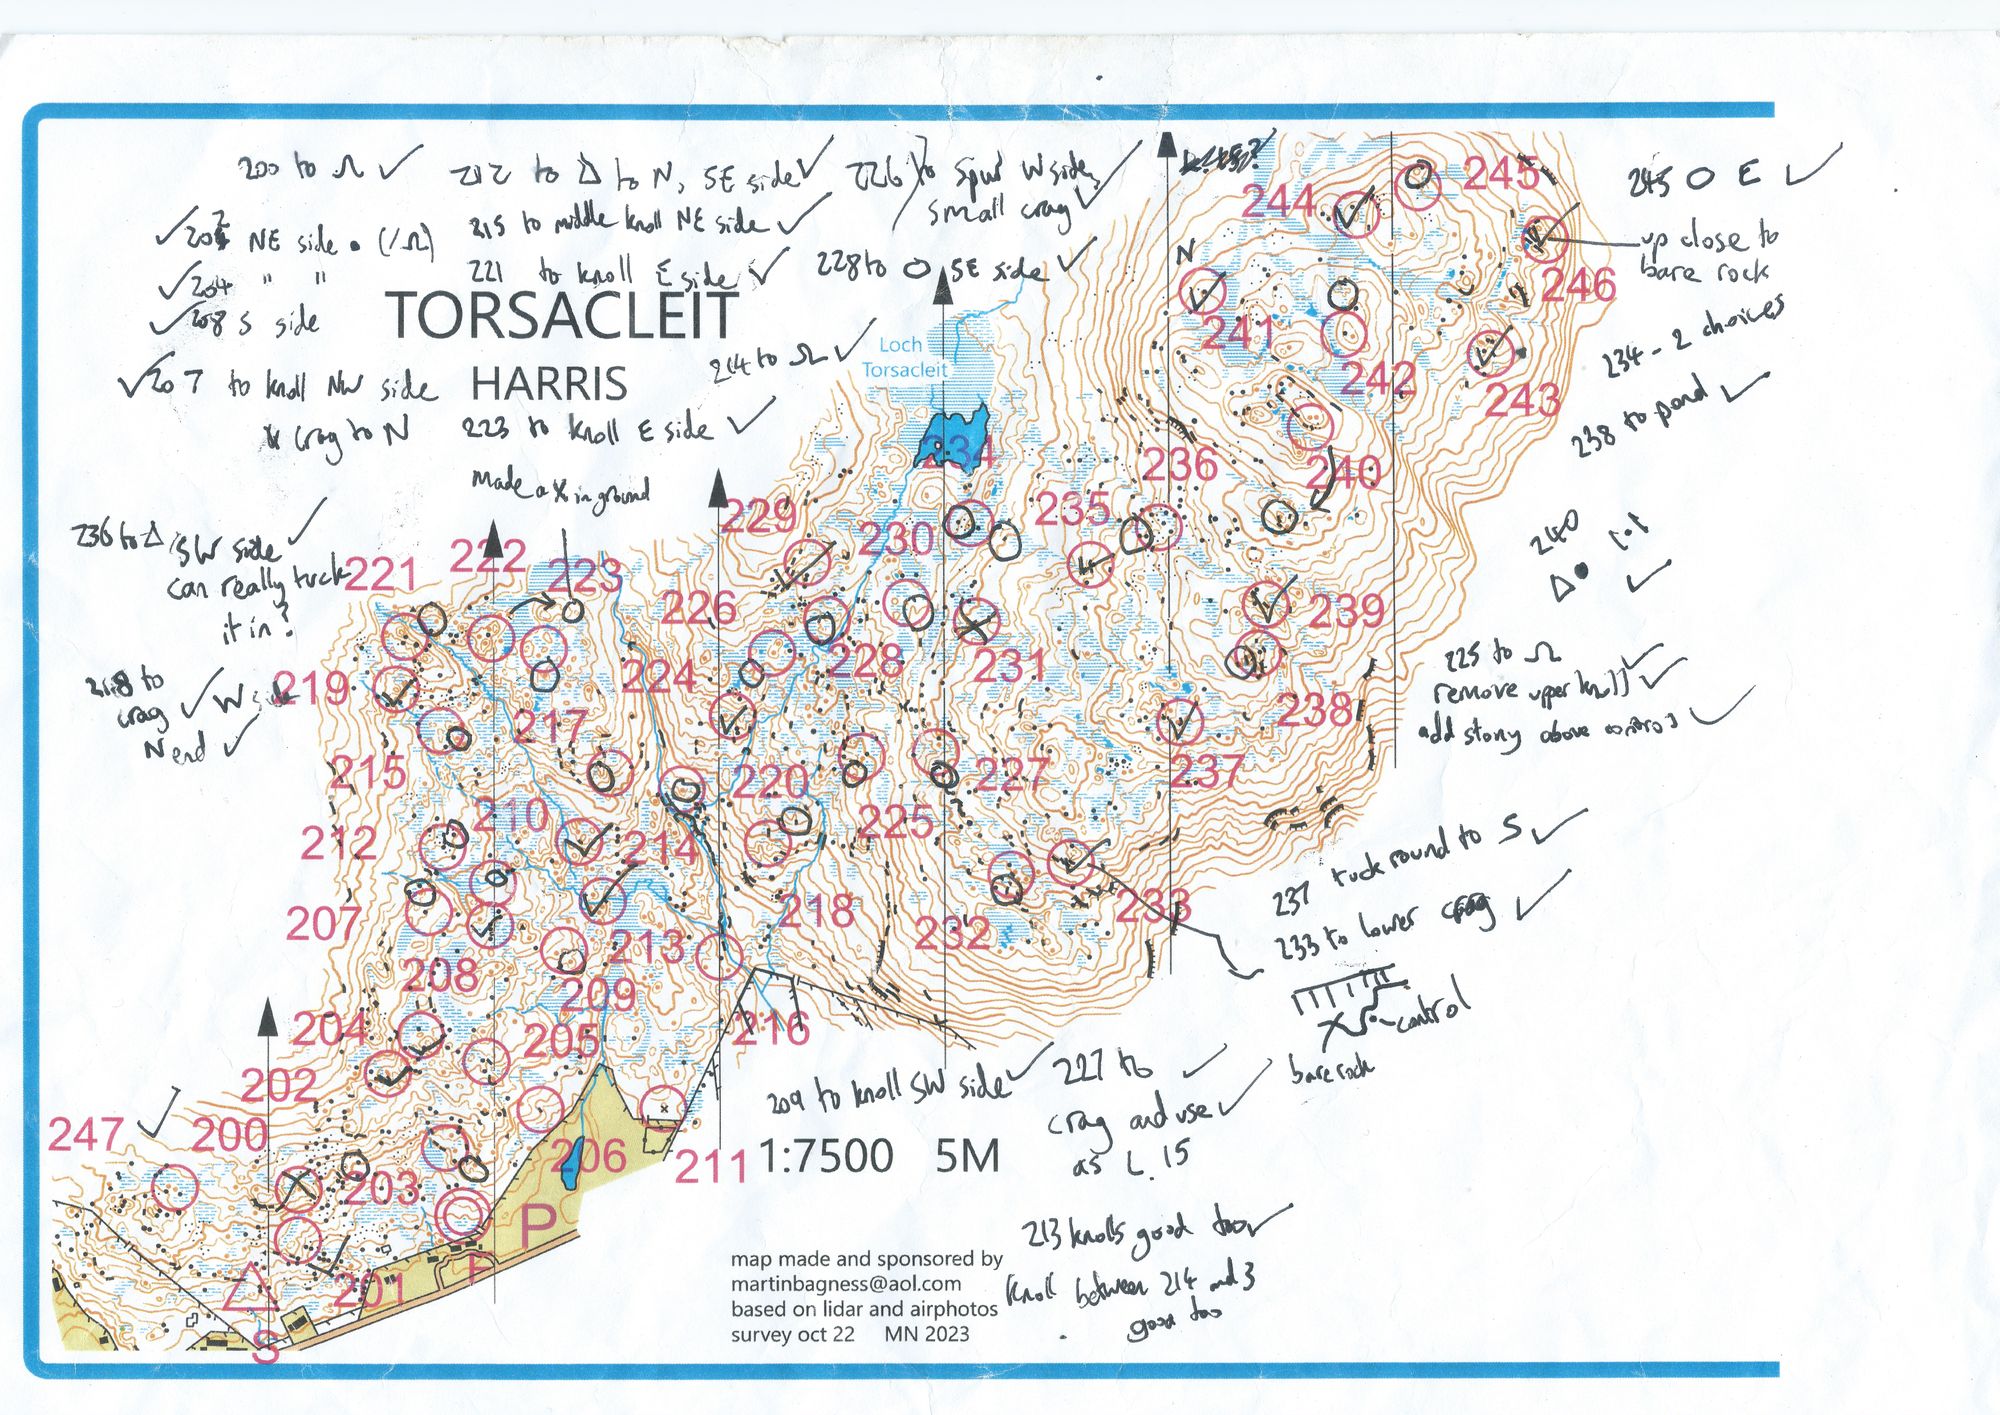 200 to Ω ✓
212 to Δ to N, SE side ✓
226 to Spur W side,
small crag ✓
✓ 202 NE side • (/Ω)
215 to middle knoll NE side ✓
✓ 204 " "
221 to knoll E side ✓
228 to O SE side ✓
✓ 208 S side
TORSACLEIT
214 to Ω ✓
✓ 207 to knoll NW side
HARRIS
crag to N
223 to knoll E side ✓
made a X in ground
Loch
Torsacleit
245 O E ✓
up close to
bare rock
234 - 2 choices
238 to pond ✓
240
Δ• ✓
236 to Δ SW side ✓
can really tuck
it in?
218 to
crag ✓ W side
N end ✓
225 to Ω
remove upper knoll ✓
add stony above control ✓
237 tuck round to S ✓
233 to lower crag ✓
control
bare rock
N
244
245
246
241
242
243
234
236
240
229
230
235
221
222
223
226
239
219
224
228
231
238
217
215
220
227
237
210
212
214
225
207
218
232
233
213
208
209
204
205
216
202
247
200
203
206
211
201
P
F
S
209 to knoll SW side ✓
227 to ✓
crag and use ✓
as L.15
1:7500 5M
213 knolls good too ✓
knoll between 214 and 3
good too
map made and sponsored by
martinbagness@aol.com
based on lidar and airphotos
survey oct 22 MN 2023